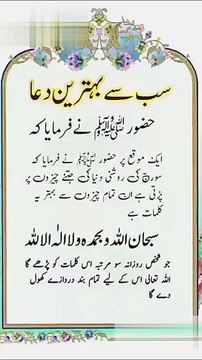 سب سے بہترین دعا
حضور ﷺ نے فرمایا کہ
ایک موقع پر حضور ﷺ نے فرمایا کہ
سورج کی روشنی دنیا کی جتنے چیزوں پر
پڑتی ہے ان تمام چیزوں سے بہتر یہ
کلمات ہے
سبحان اللہ وبحمدہ ولا الہ الا اللہ
جو شخص روزانہ سو مرتبہ اس کلمات کو پڑھے گا
اللہ تعالی اس کے لیے تمام بند دروازے کھول
دے گا